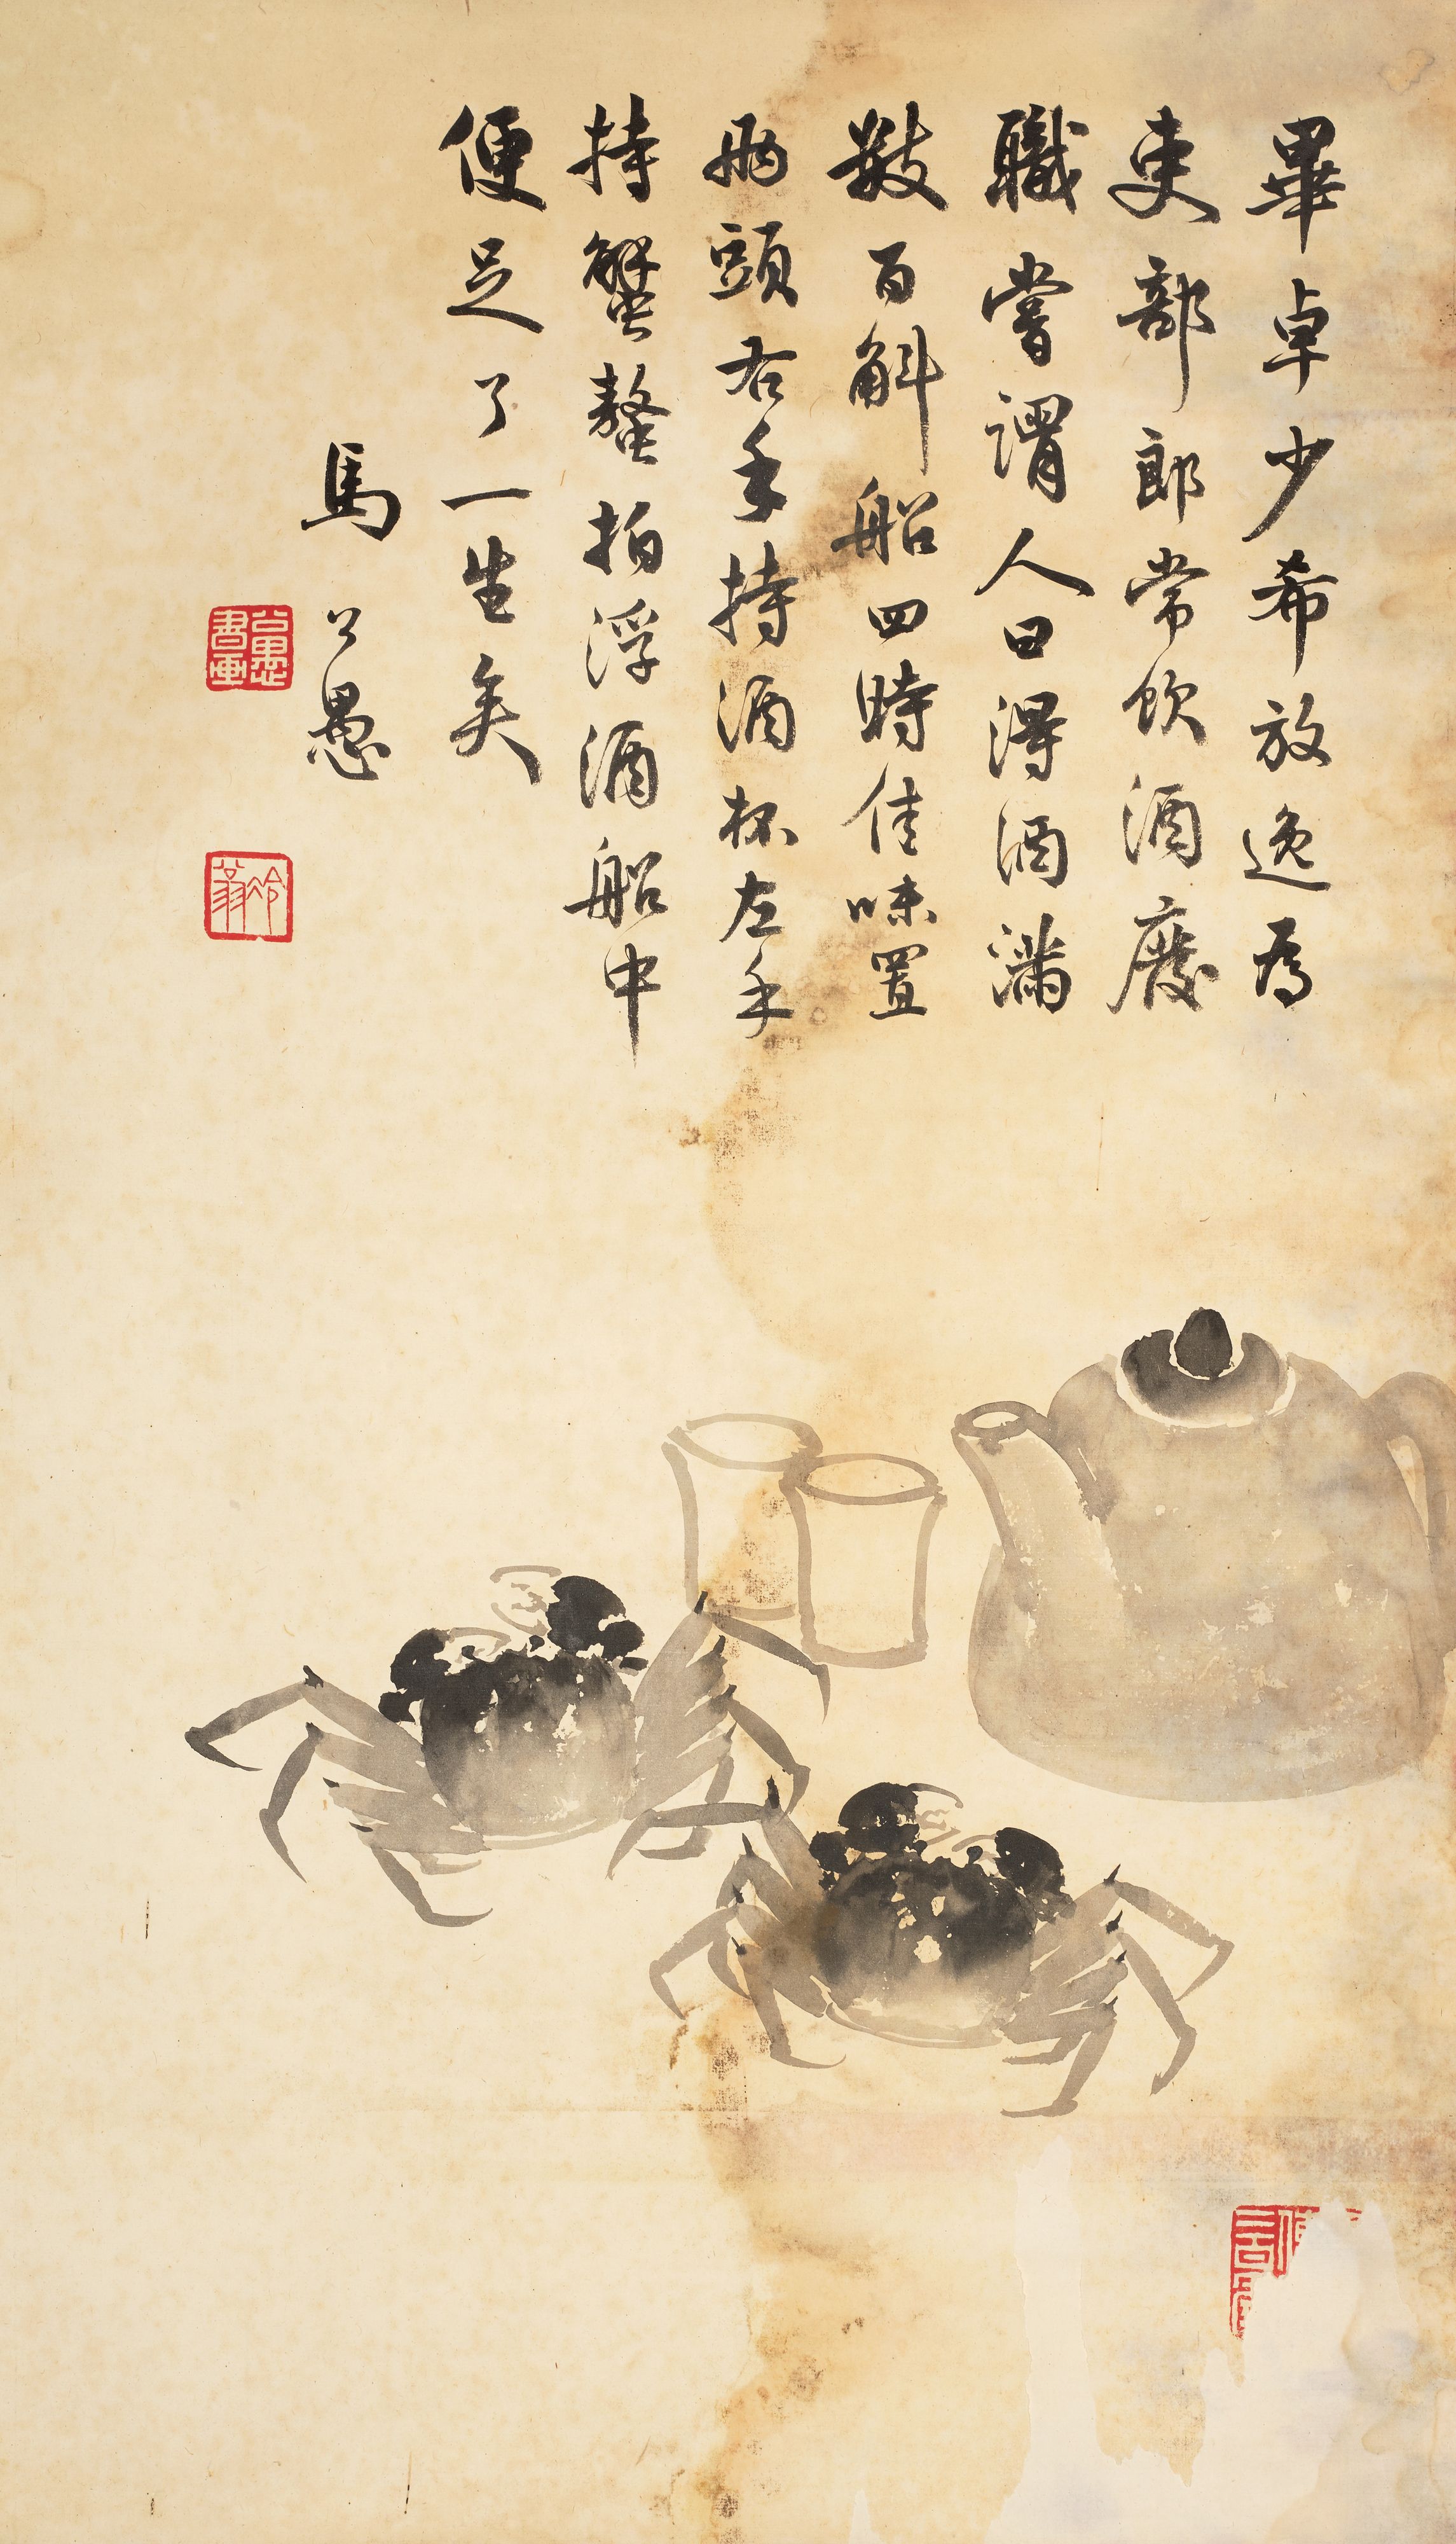 畢卓少希放逸爲
吏部郎常飲酒廢
職嘗謂人曰得酒滿
數百斛船四時佳味置
兩頭右手持酒杯左手
持蟹螯拍浮酒船中
便足了一生矣
馬公愚
公愚書畫
冷翁